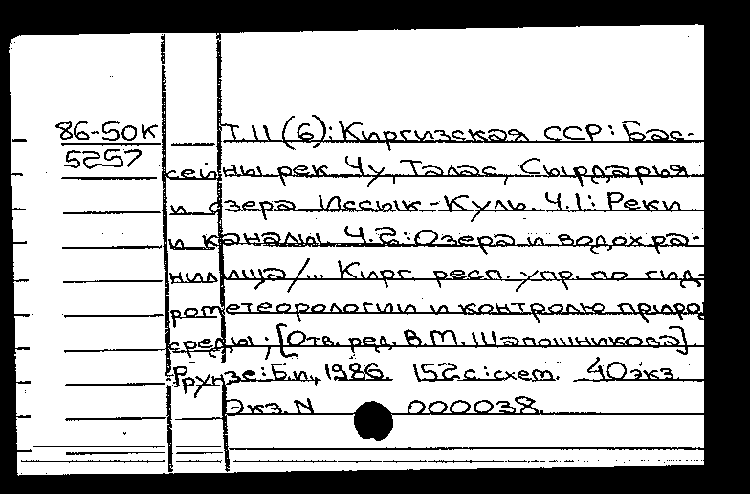 86-50К Т.11 (6): Киргизская ССР: Бас-
5257
сейны рек Чу, Талас, Сырдарья
и озера Иссык-Куль. Ч.1: Реки
и каналы. Ч.2: Озера и водохра-
нилища/... Кирг. респ. упр. по гид-
рометеорологии и контролю природ
среды; [Отв. ред. В.М. Шапошникова].
Фрунзе: Б.и., 1986. 152с.: схем. 40экз
Экз. N 000038.